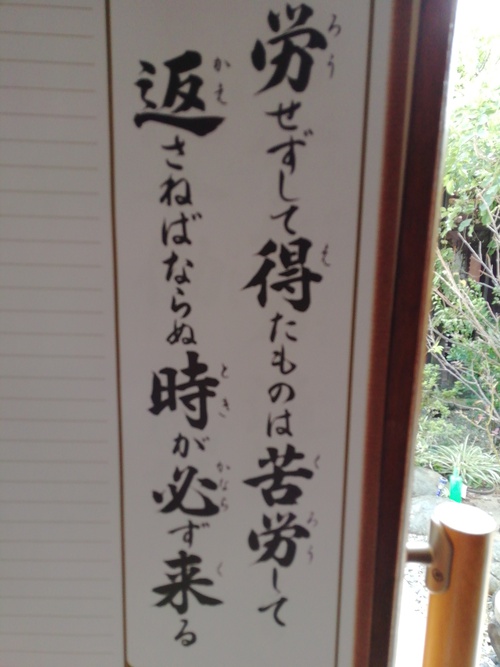 労せずして得たものは苦労して
返さねばならぬ時が必ず来る